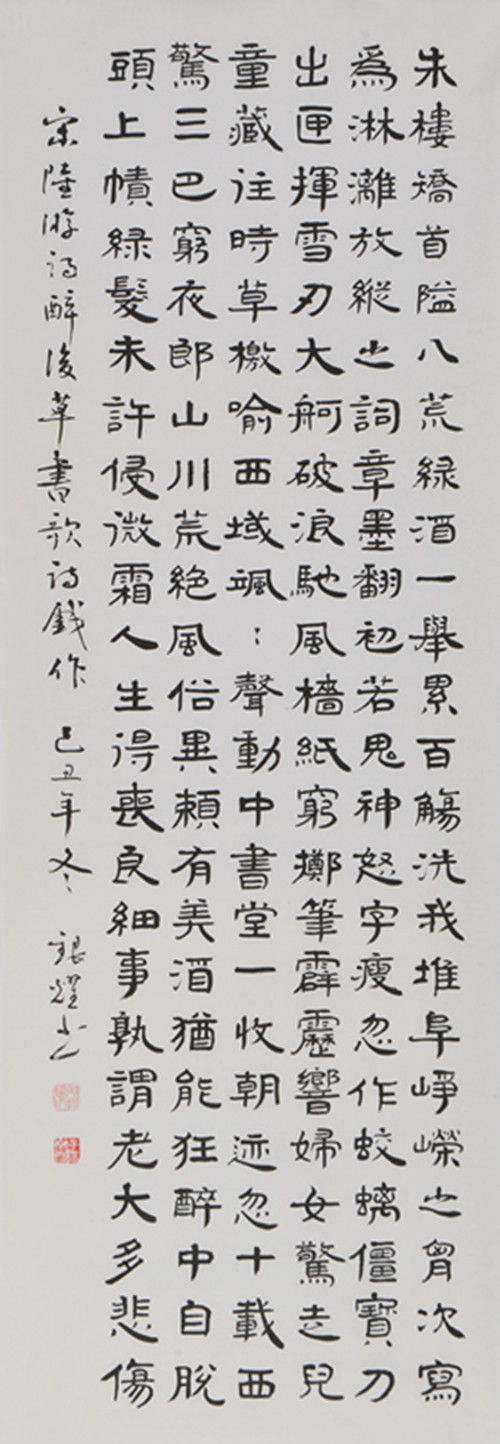 朱樓矯首隘八荒綠酒一舉累百觴洗我堆阜崢嶸之胷次寫
爲淋灕放縱之詞章墨翻初若鬼神怒字瘦忽作蛟螭僵寶刀
出匣揮雪刃大舸破浪馳風檣紙窮擲筆霹靂響婦女驚走兒
童藏往時草檄喻西域颯〻聲動中書堂一收朝迹忽十載西
驚三巴窮夜郎山川荒絕風俗異賴有美酒猶能狂醉中自脫
頭上幘綠髮未許侵微霜人生得喪良細事孰謂老大多悲傷
宋陸游詩醉後草書歌詩戲作 己丑年冬 書